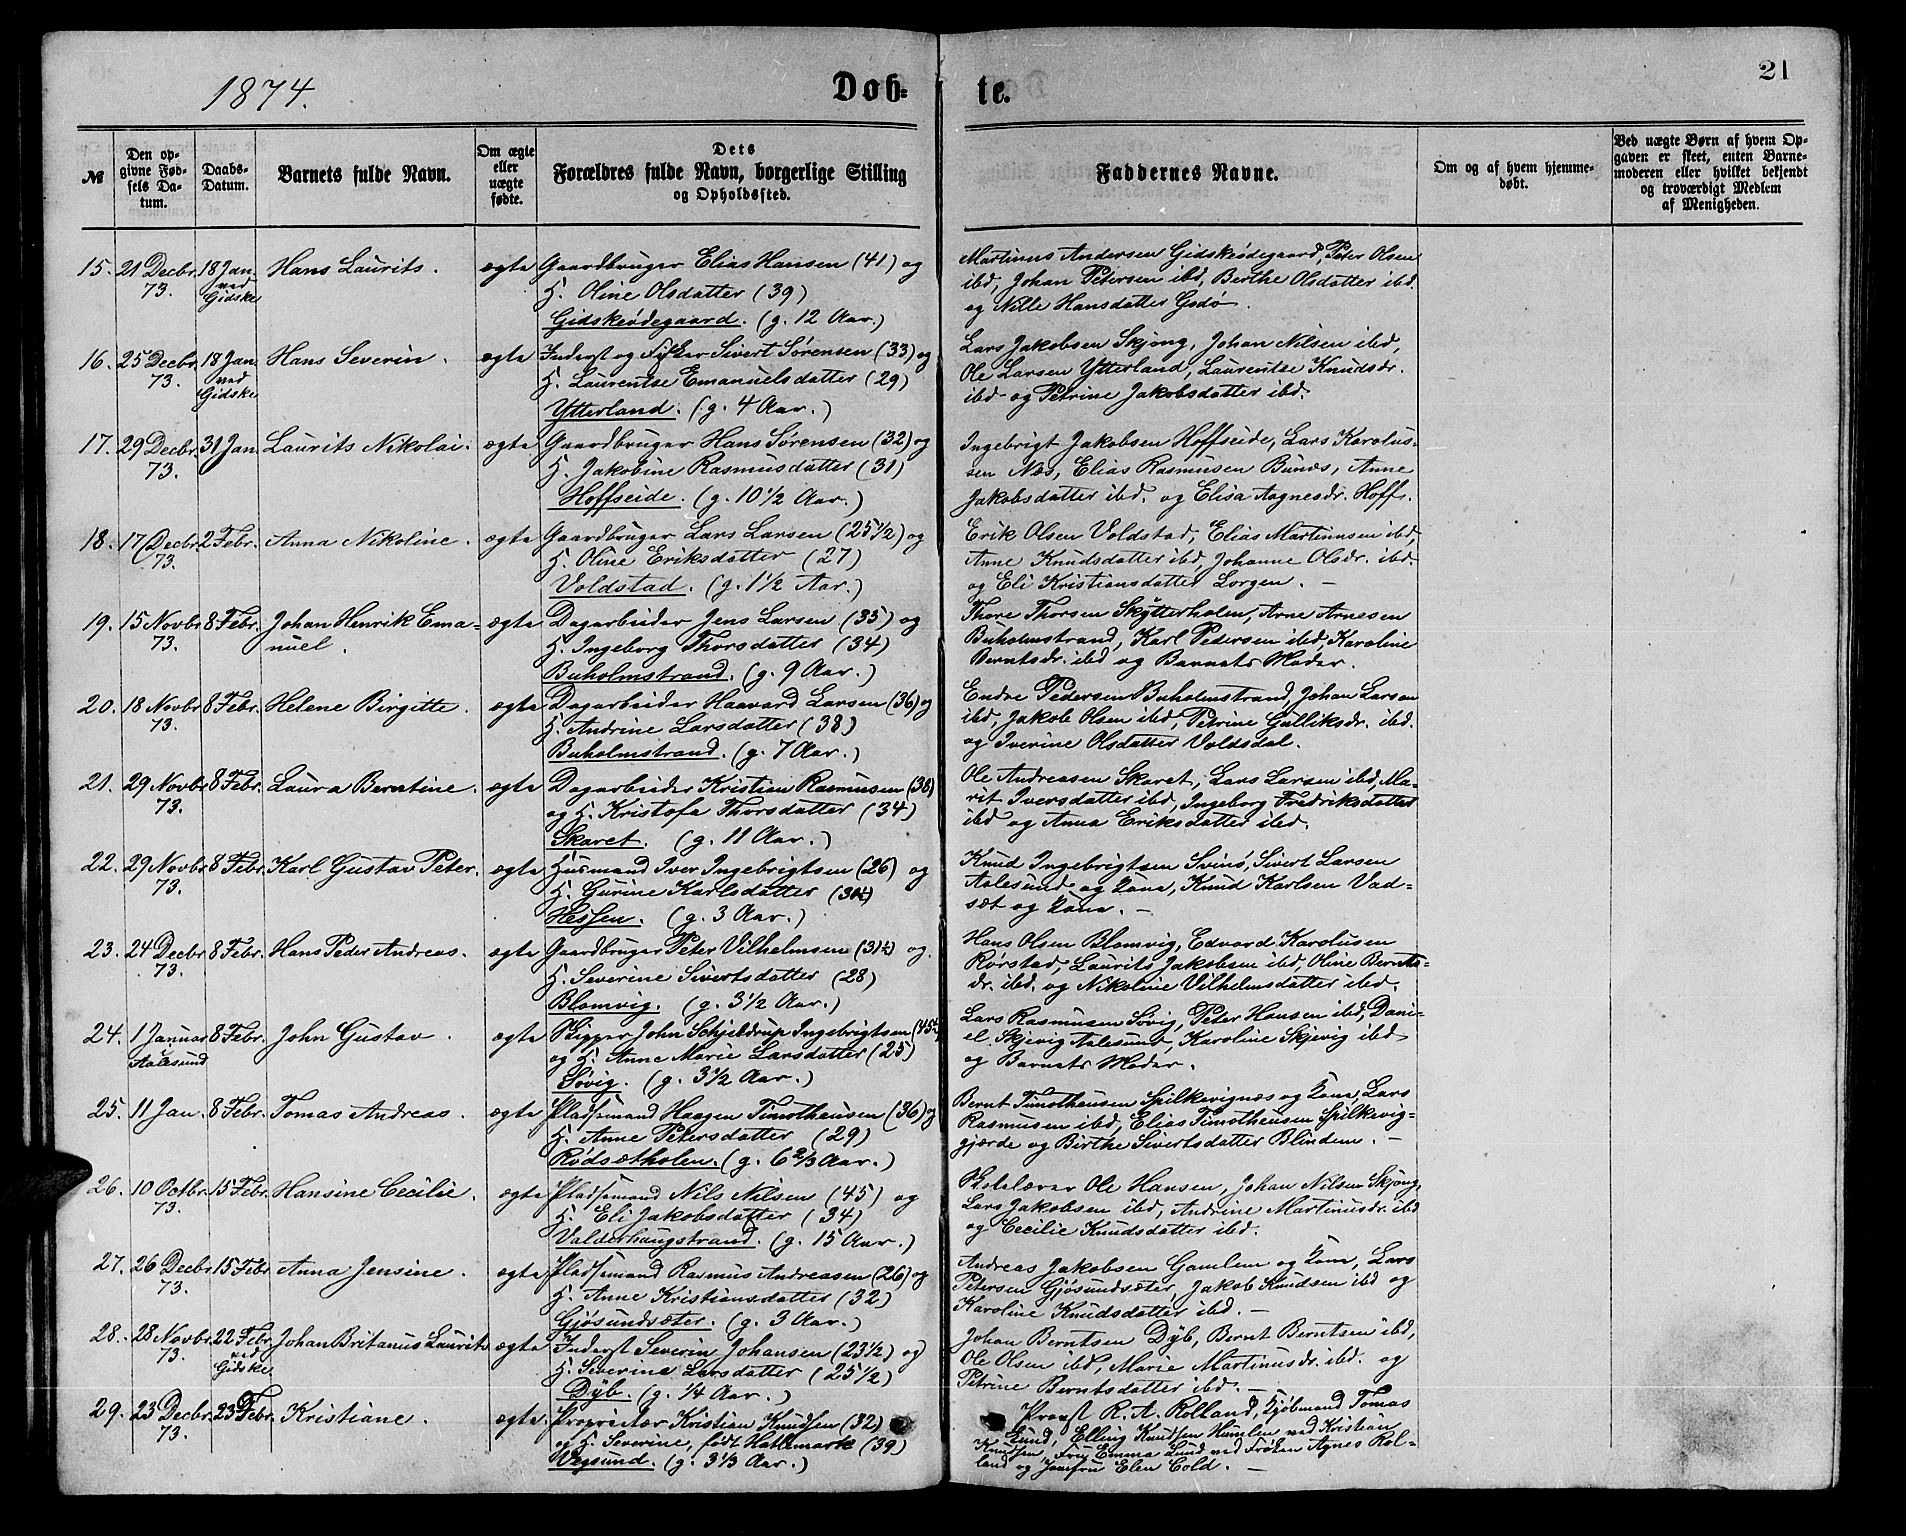 1874.
Døb-
te.
21
№
Den op-
givne Fød-
sels Da-
tum.
Daabs-
Datum.
Barnets fulde Navn.
Om ægte
eller
uægte
fødte.
Dets
Forældres fulde Navn, borgerlige Stilling
og Opholdssted.
Faddernes Navne.
Om og af hvem hjemme-
døbt.
Ved uægte Børn af hvem Op-
gaven er skeet, enten Barne-
moderen eller hvilket bekjendt
og troværdigt Medlem
af Menigheden.
15. 21 Decbr. 18 Jan. Hans Laurits. ægte Gaardbruger Elias Hansen (41) og
73. ved H. Oline Olsdatter (39)
Gidske Gidskeødegaard. (g. 12 Aar.)
Martinus Andersen Gidskødegaard, Peter Olsen
ibd, Johan Petersen ibd, Berthe Olsdatter ibd.
og Nille Hansdatter Godø.
16. 25 Decbr. 18 Jan. Hans Severin. ægte Inderst og Fisker Sivert Sørensen (33) og
73. ved H. Laurentse Emanuelsdatter (29)
Gidske Ytterland. (g. 4 Aar.)
Lars Jakobsen Skjong, Johan Nilsen ibd,
Ole Larsen Ytterland, Laurentse Knudsdr.
ibd og Petrine Jakobsdatter ibd.
17. 29 Decbr. 31 Jan. Laurits Nikolai. ægte Gaardbruger Hans Sørensen (32) og
73. H. Jakobine Rasmusdatter (31)
Hoffseide. (g. 10 1/2 Aar.)
Ingebrigt Jakobsen Hoffseide, Lars Karolus-
sen Næs, Elias Rasmusen Bunæs, Anne
Jakobsdatter ibd. og Elisa Aagnesdr. Hoff.
18. 17 Decbr. 2 Febr. Anna Nikoline. ægte Gaardbruger Lars Larsen (25 1/2) og
73. H. Oline Eriksdatter (27)
Voldstad. (g. 1 1/2 Aar.)
Erik Olsen Voldstad, Elias Martinusen ibd,
Anne Knudsdatter ibd, Johanne Olsdr. ibd.
og Eli Kristiansdatter Lorgen. —
19. 15 Novbr. 8 Febr. Johan Henrik Ema- ægte Dagarbeider Jens Larsen (35) og
73. nuel. H. Ingeborg Thorsdatter (34)
Buholmstrand. (g. 9 Aar.)
Thore Thorsen Skytterholen, Arne Arnesen
Buholmstrand, Karl Pedersen ibd, Karoline
Berntsdr. ibd og Barnets Moder.
20. 18 Novbr. 8 Febr. Helene Birgitte. ægte Dagarbeider Haavard Larsen (36) og
73. H. Andrine Larsdatter (38)
Buholmstrand. (g. 7 Aar.)
Endre Pedersen Buholmstrand, Johan Larsen
ibd, Jakob Olsen ibd, Petrine Gulliksdr. ibd.
og Iverine Olsdatter Voldsdal.
21. 29 Novbr. 8 Febr. Laura Berntine. ægte Dagarbeider Kristian Rasmusen (36)
73. og H. Kristofa Thorsdatter (34)
Skaret. (g. 11 Aar.)
Ole Andreasen Skaret, Lars Larsen ibd, Ma-
rit Iversdatter ibd, Ingeborg Fredriksdatter
ibd og Anna Eriksdatter ibd.
22. 29 Novbr. 8 Febr. Karl Gustav Peter. ægte Husmand Iver Ingebrigtsen (26) og
73. H. Gurine Karlsdatter
Hessen. (g. 3 Aar.)
Knud Ingebrigtsen Svinø, Sivert Larsen
Aalesund og Kona, Knud Karlsen Vad-
sæt og Kona. —
23. 24 Decbr. 8 Febr. Hans Peder Andreas. ægte Gaardbruger Peter Vilhelmsen og
73. H. Severine Sivertsdatter (28)
Blomvig. (g. 3 1/2 Aar.)
Hans Olsen Blomvig, Edvard Karolusen
Rørstad, Laurits Jakobsen ibd, Oline Bernts-
dr. ibd. og Nikoline Vilhelmsdatter ibd.
24. 1 Januar 8 Febr. John Gustav. ægte Skipper John Schjeldrup Ingebrigtsen
Aalesund og H. Anne Marie Larsdatter (25)
Søvig. (g. 3 1/2 Aar.)
Lars Rasmusen Søvig, Peter Hansen ibd, Dani-
el Skjevig Aalesund, Karoline Skjevig ibd
og Barnets Moder.
25. 11 Jan. 8 Febr. Tomas Andreas. ægte Pladsemand Haagen Timotheusen (36) og
H. Anne Petersdatter (29)
Rødsætholen. (g. 6 2/3 Aar.)
Bernt Timotheusen Spilkevignæs og Kona, Lars
Rasmusen ibd, Elias Timotheusen Spilkevig-
gjærde og Birthe Sivertsdatter Blindem. —
26. 10 Octbr. 15 Febr. Hansine Cecilie. ægte Pladsemand Nils Nilsen (45) og
73. H. Eli Jakobsdatter (34)
Valderhaugstrand. (g. 15 Aar.)
Skolelærer Ole Hansen, Johan Nilsen Skjong,
Lars Jakobsen ibd, Andrine Martinusdr. ibd
og Cecilie Knudsdatter ibd.
27. 26 Decbr. 15 Febr. Anna Jensine. ægte Pladsemand Rasmus Andreasen (26) og
73. H. Anne Kristiansdatter (32)
Gjøsundsæter. (g. 3 Aar.)
Andreas Jakobsen Gamlem og Kona, Lars
Petersen Gjøsundsæter, Jakob Knudsen ibd og
Karoline Knudsdatter ibd. —
28. 28 Novbr. 22 Febr. Johan Britanus Laurits ægte Inderst Severin Johansen (23 1/2) og
73. ved H. Severine Larsdatter (25 1/2)
Gidske. Dyb. (g. 1/4 Aar.)
Johan Berntsen Dyb, Bernt Berntsen ibd,
Ole Olsen ibd, Marie Martinusdr. ibd. og
Petrine Berntsdatter ibd. —
29. 23 Decbr. 23 Febr. Kristiane. ægte Proprietær Kristian Knudsen (32)
73. og H. Severine, født Hallemark (39)
Vegsund. (g. 3 1/3 Aar.)
Provst R. A. Rolland, Kjøbmand Tomas
Lund, Elling Knudsen Humlen ved Kristian
Knudsen, Fru Emma Lund ved Frøken Agnes Rol-
land og Jomfru Elen Cold. —